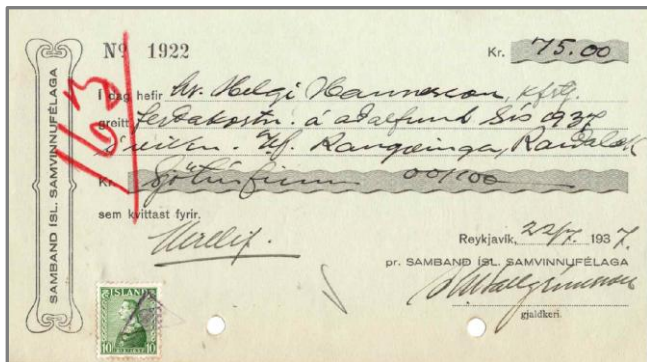 SAMBAND ÍSL. SAMVINNUFÉLAGA
163
Nº 1922
Kr. 75.00
Í dag hefir hr. Helgi Hannesson, kfstj.
greitt ferðakostn. á aðalfund Sís 1937
Kf. Rangæinga, Rauðalæk
Kr. Sjötíu fimm 00/100
sem kvittast fyrir.
Reykjavík, 22/7 1937.
pr. SAMBAND ÍSL. SAMVINNUFÉLAGA
gjaldkeri.
ÍSLAND
10 10